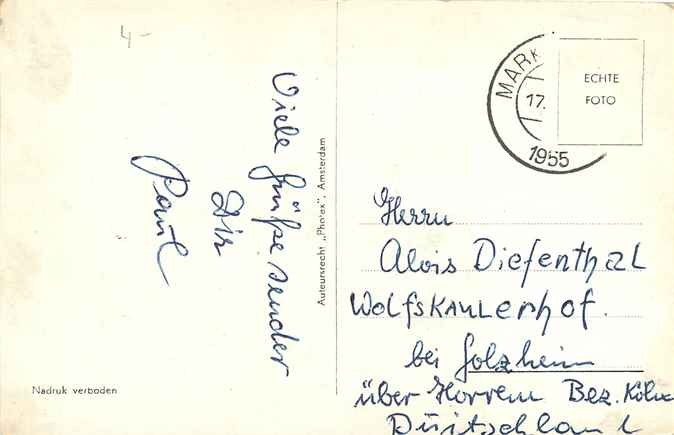 4-
Viele Grüße sendet
Dir
Paul
Auteursrecht „Photex”, Amsterdam
Nadruk verboden
MARK
17.
1955
ECHTE
FOTO
Herrn
Alois Diefenthal
Wolfskaulerhof.
bei Golzheim
über Horrem Bez. Köln
Duitschland